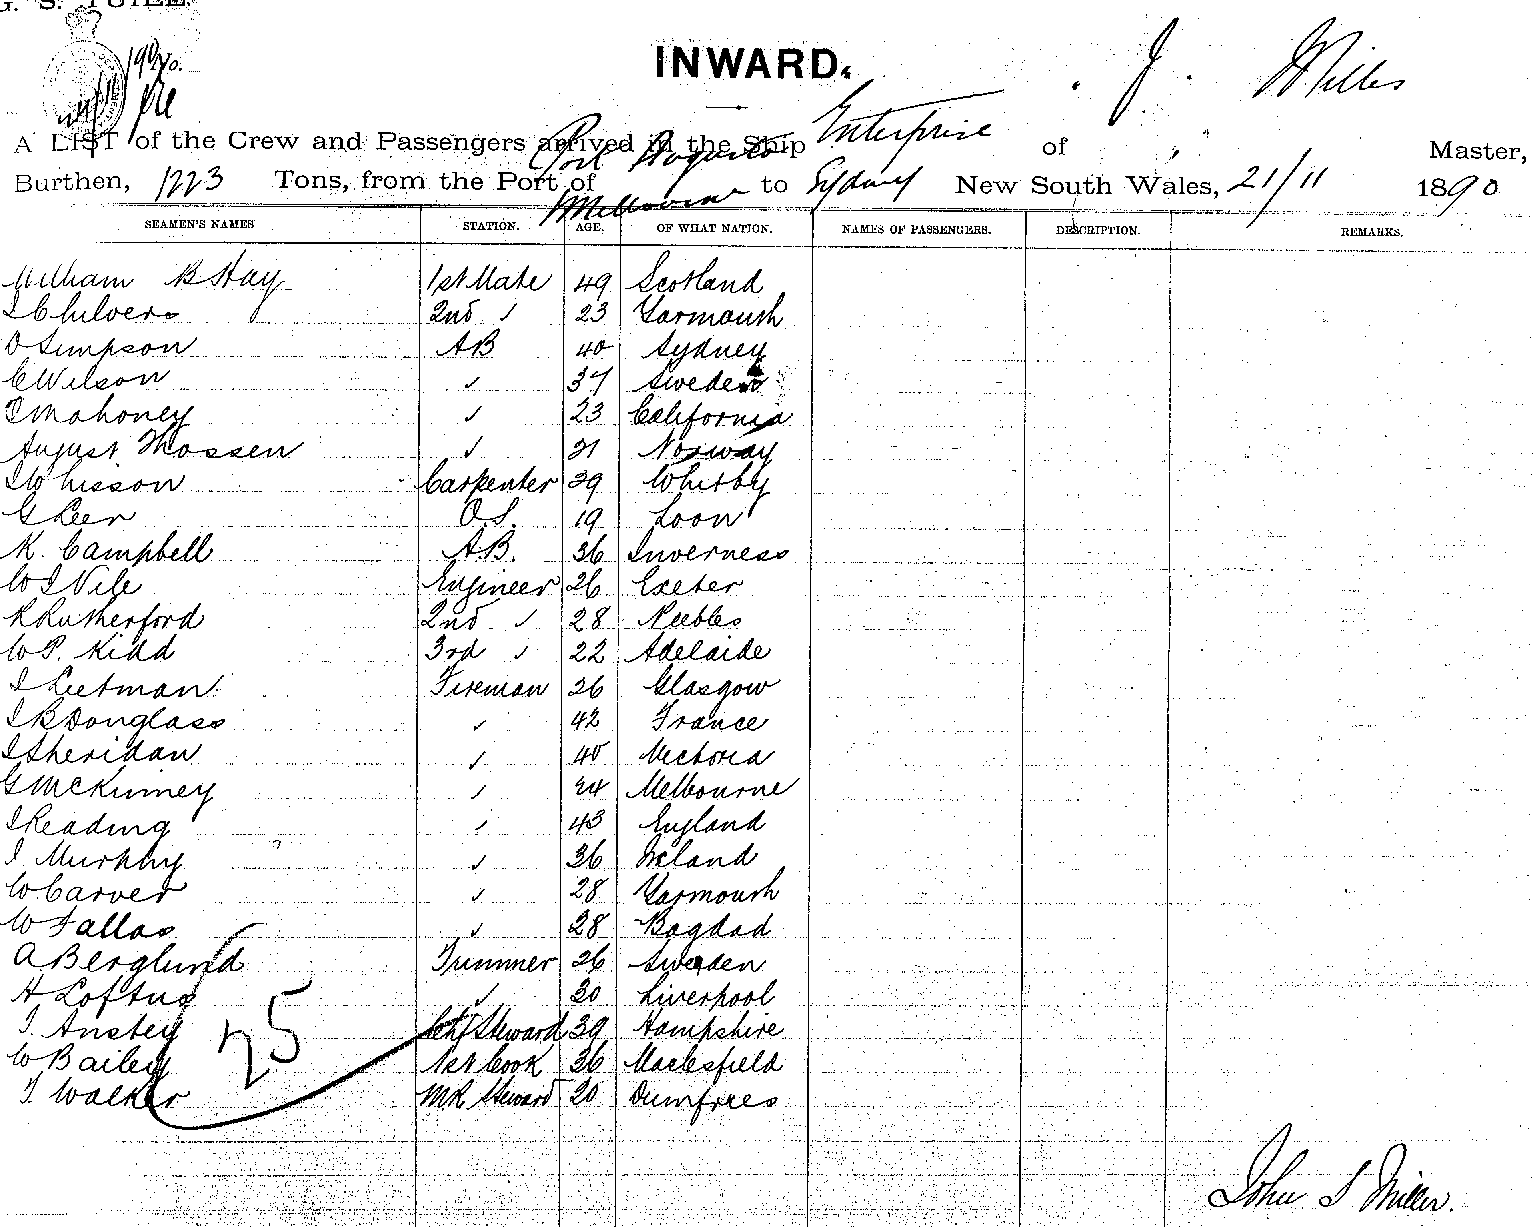 INWARD.
J. Miller
A LIST of the Crew and Passengers arrived in the Ship Enterprise of
Master,
Burthen, 1223 Tons, from the Port of Port Augusta Melbourne to Sydney New South Wales, 21/11 1890
SEAMEN'S NAMES STATION. AGE. OF WHAT NATION. NAMES OF PASSENGERS. DESCRIPTION. REMARKS.
William B Hay 1st Mate 49 Scotland
J Chilvers 2nd " 23 Yarmouth
O Simpson AB 40 Sydney
C Wilson " 37 Sweden
Mahoney " 23 California
August Thossen " 21 Norway
Carpenter 39 Whitby
G Leer O.S. 19 Loon
K. Campbell AB. 36 Inverness
W J Vile Engineer 26 Exeter
R Rutherford 2nd " 28 Peebles
W P. Kidd 3rd " 22 Adelaide
J Leetman Fireman 26 Glasgow
J B Douglass " 42 France
J Sheridan " 40 Victoria
G McKinney " 24 Melbourne
J Reading " 43 England
J Murphy " 36 Ireland
W Carver " 28 Yarmouth
W Fallas " 28 Bagdad
A Berglund Trimmer 26 Sweden
H Loftus " 30 Liverpool
J. Anstey Chf Steward 39 Hampshire
W Bailey 1st Cook 36 Maclesfield
T. Walker MR Steward 20 Dumfries
25
John S Miller.